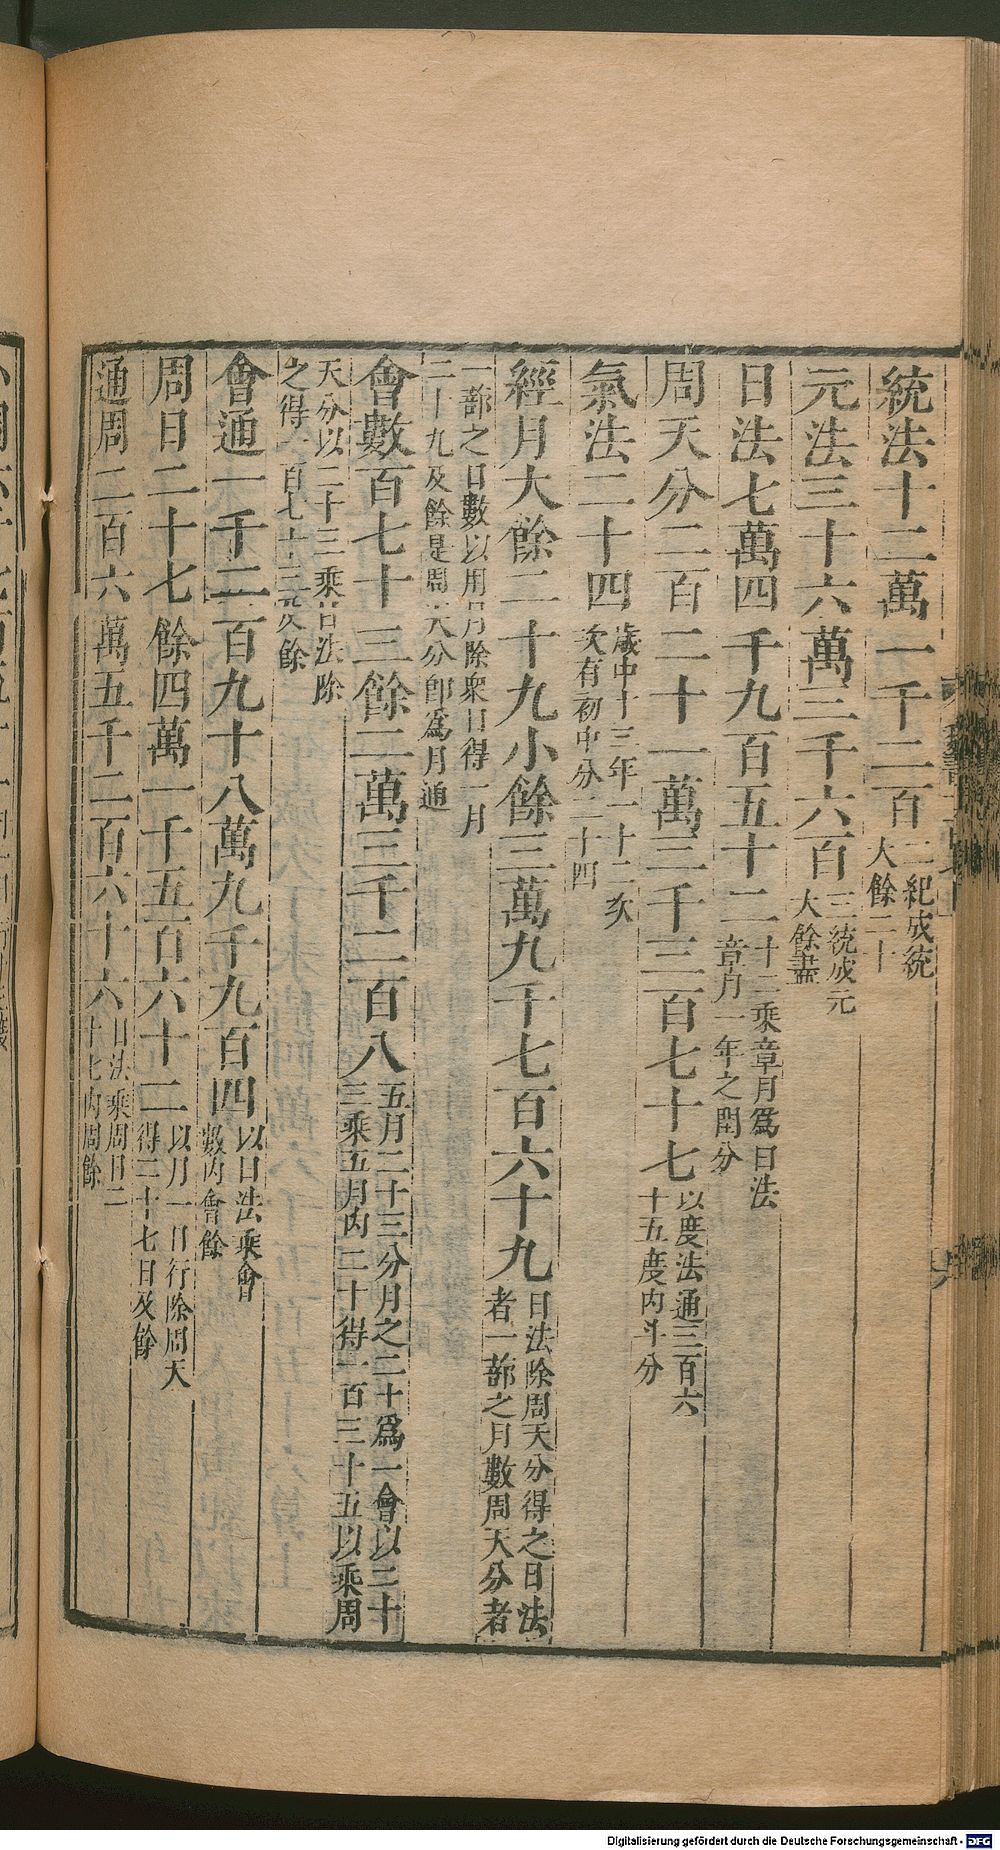 統法十二萬一千二百二紀成統大餘二十
元法三十六萬三千六百三統成元大餘盡
日法七萬四千九百五十二十二乘章月爲日法章月一年之閏分
周天分二百二十一萬三千三百七十七以度法通三百六十五度內斗分
氣法二十四歲中十二年一十二亥次有初中分二十四
經月大餘二十九小餘三萬九千七百六十九日法除周天分得之日法者一蔀之月數周天分者
一蔀之日數以用月除衆日得一月二十九及餘是周天分即爲月通
會數百七十三餘二萬三千二百八五月二十三分月之二十爲一會以二十三乘五月內二十得一百三十五以乘周
天分以二十三乘日法除之得一百七十三及餘
會通一千二百九十八萬九千九百四以日法乘會數內會餘
周日二十七餘四萬一千五百六十二以月一日行除周天得二十七日及餘
通周二百六萬五千二百六十六日法乘周日二十七內周餘
Digitalisierung gefördert durch die Deutsche Forschungsgemeinschaft - DFG